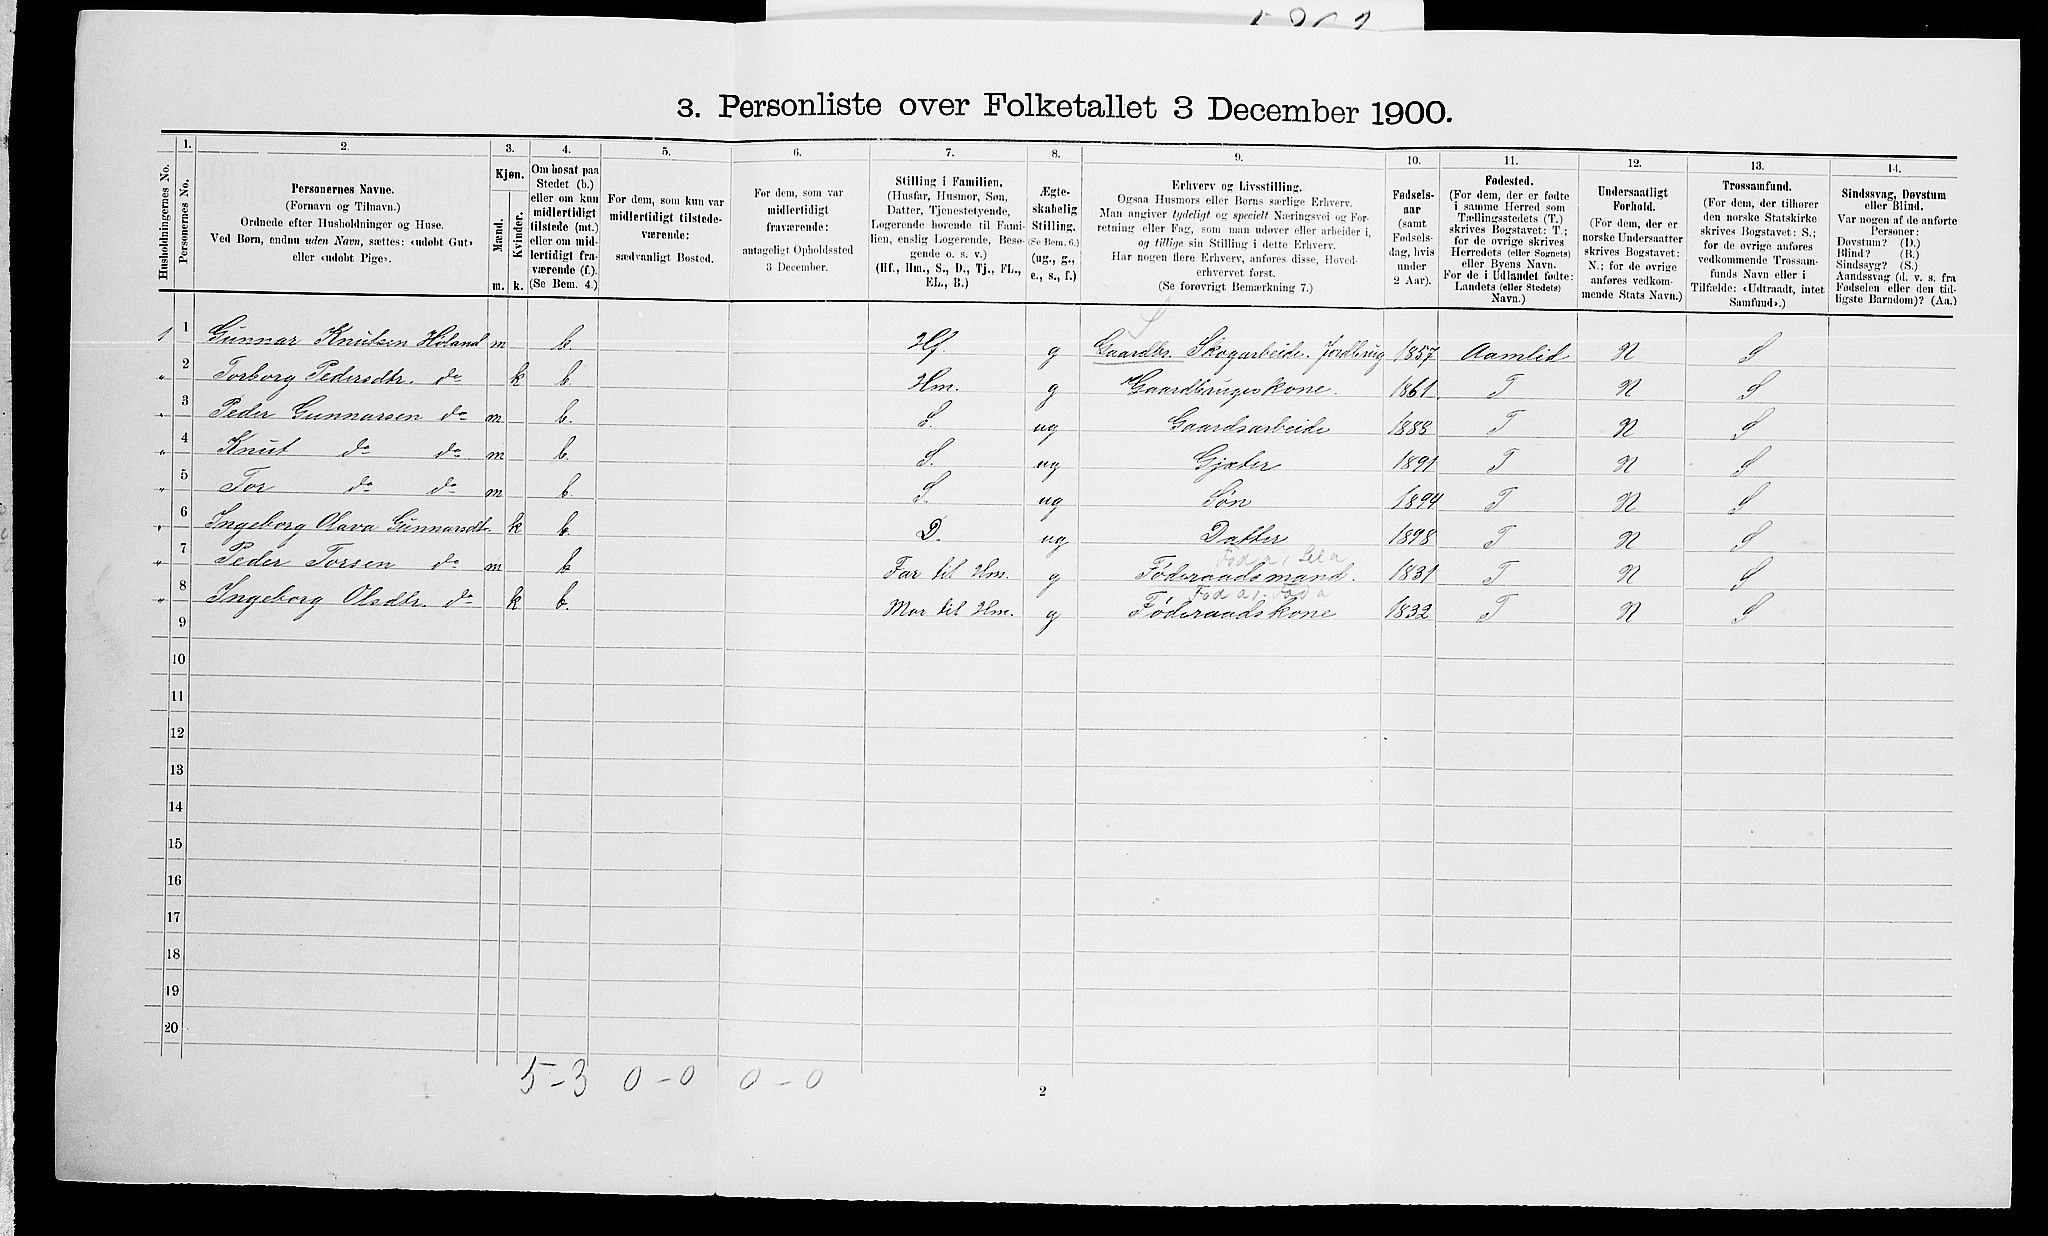 3. Personliste over Folketallet 3 December 1900.
1. 2. 3. 4. 5. 6. 7. 8. 9. 10. 11. 12. 13. 14.
Husholdningernes No.
Personernes No.
Personernes Navne.
(Fornavn og Tilnavn.)
Ordnede efter Husholdninger og Huse.
Ved Børn, endnu uden Navn, sættes: «udøbt Gut»
eller «udøbt Pige».
Kjøn.
Mænd.
Kvinder.
m. k.
Om bosat paa
Stedet (b.)
eller om kun
midlertidigt
tilstede (mt.)
eller om mid-
lertidigt fra-
værende (f.).
(Se Bem. 4.)
For dem, som kun var
midlertidigt tilstede-
værende:
sædvanligt Bosted.
For dem, som var
midlertidigt
fraværende:
antageligt Opholdssted
3 December.
Stilling i Familien.
(Husfar, Husmor, Søn,
Datter, Tjenestetyende,
Logerende hørende til Fami-
lien, enslig Logerende, Besø-
gende o. s. v.)
(Hf., Hm., S., D., Tj., FL.,
EL., B.)
Ægte-
skabelig
Stilling.
(Se Bem. 6.)
(ug., g.,
e., s., f.)
Erhverv og Livsstilling.
Ogsaa Husmors eller Børns særlige Erhverv.
Man angiver tydeligt og specielt Næringsvei og For-
retning eller Fag, som man udøver eller arbeider i,
og tillige sin Stilling i dette Erhverv.
Har nogen flere Erhverv, anføres disse, Hoved-
erhvervet først.
(Se forøvrigt Bemærkning 7.)
Fødsels-
aar
(samt
Fødsels-
dag, hvis
under
2 Aar).
Fødested.
(For dem, der er fødte
i samme Herred som
Tællingsstedets (T.)
skrives Bogstavet: T.;
for de øvrige skrives
Herredets (eller Sognets)
eller Byens Navn.
For de i Udlandet fødte:
Landets (eller Stedets)
Navn.)
Undersaatligt
Forhold.
(For dem, der er
norske Undersaatter
skrives Bogstavet:
N.; for de øvrige
anføres vedkom-
mende Stats Navn.)
Trossamfund.
(For dem, der tilhører
den norske Statskirke
skrives Bogstavet: S.;
for de øvrige anføres
vedkommende Trossam-
funds Navn eller i
Tilfælde: «Udtraadt, intet
Samfund».)
Sindssvag, Døvstum
eller Blind.
Var nogen af de anførte
Personer:
Døvstum? (D.)
Blind? (B.)
Sindssyg? (S.)
Aandssvag (d. v. s. fra
Fødselen eller den tid-
ligste Barndom)? (Aa.)
S
1 1 Gunnar Knutsen Holand m b. Hf. g Gaardbr. Skogarbeide. Jordbrug 1857 Aamlid N S
" 2 Torborg Pedersdtr. do k b. Hm. g Gaardbrugeskone. 1861 T N S
" 3 Peder Gunnarsen do m b. S. ug Gaardsarbeide 1888 T N S
" 4 Knut do do m b. S. ug Gjæter 1891 T N S
" 5 Tor do do m b. S. ug Søn 1894 T N S
" 6 Ingeborg Olava Gunnarsdtr. k b. D. ug Datter 1898 T N S
" 7 Peder Torsen do m b Far til Hm. g Føderaadsmand. 1831 T N S
" 8 Ingeborg Olsdtr. do k b. Mor til Hm. g Føderaadskone 1832 T N S
9
10
11
12
13
14
15
16
17
18
19
20
5-3 0-0 0-0
2